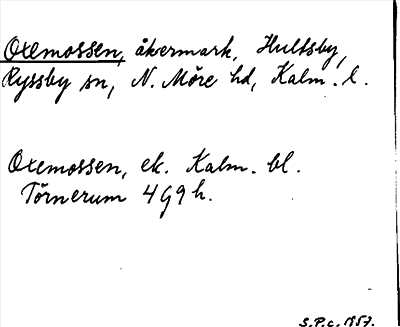 Oxemossen, åkermark, Hultsby,
Ryssby sn, N. Möre hd, Kalm. l.
Oxemossen, ek. Kalm. bl.
Törnerum 4 G 9 h.
S.P.c. 1957.